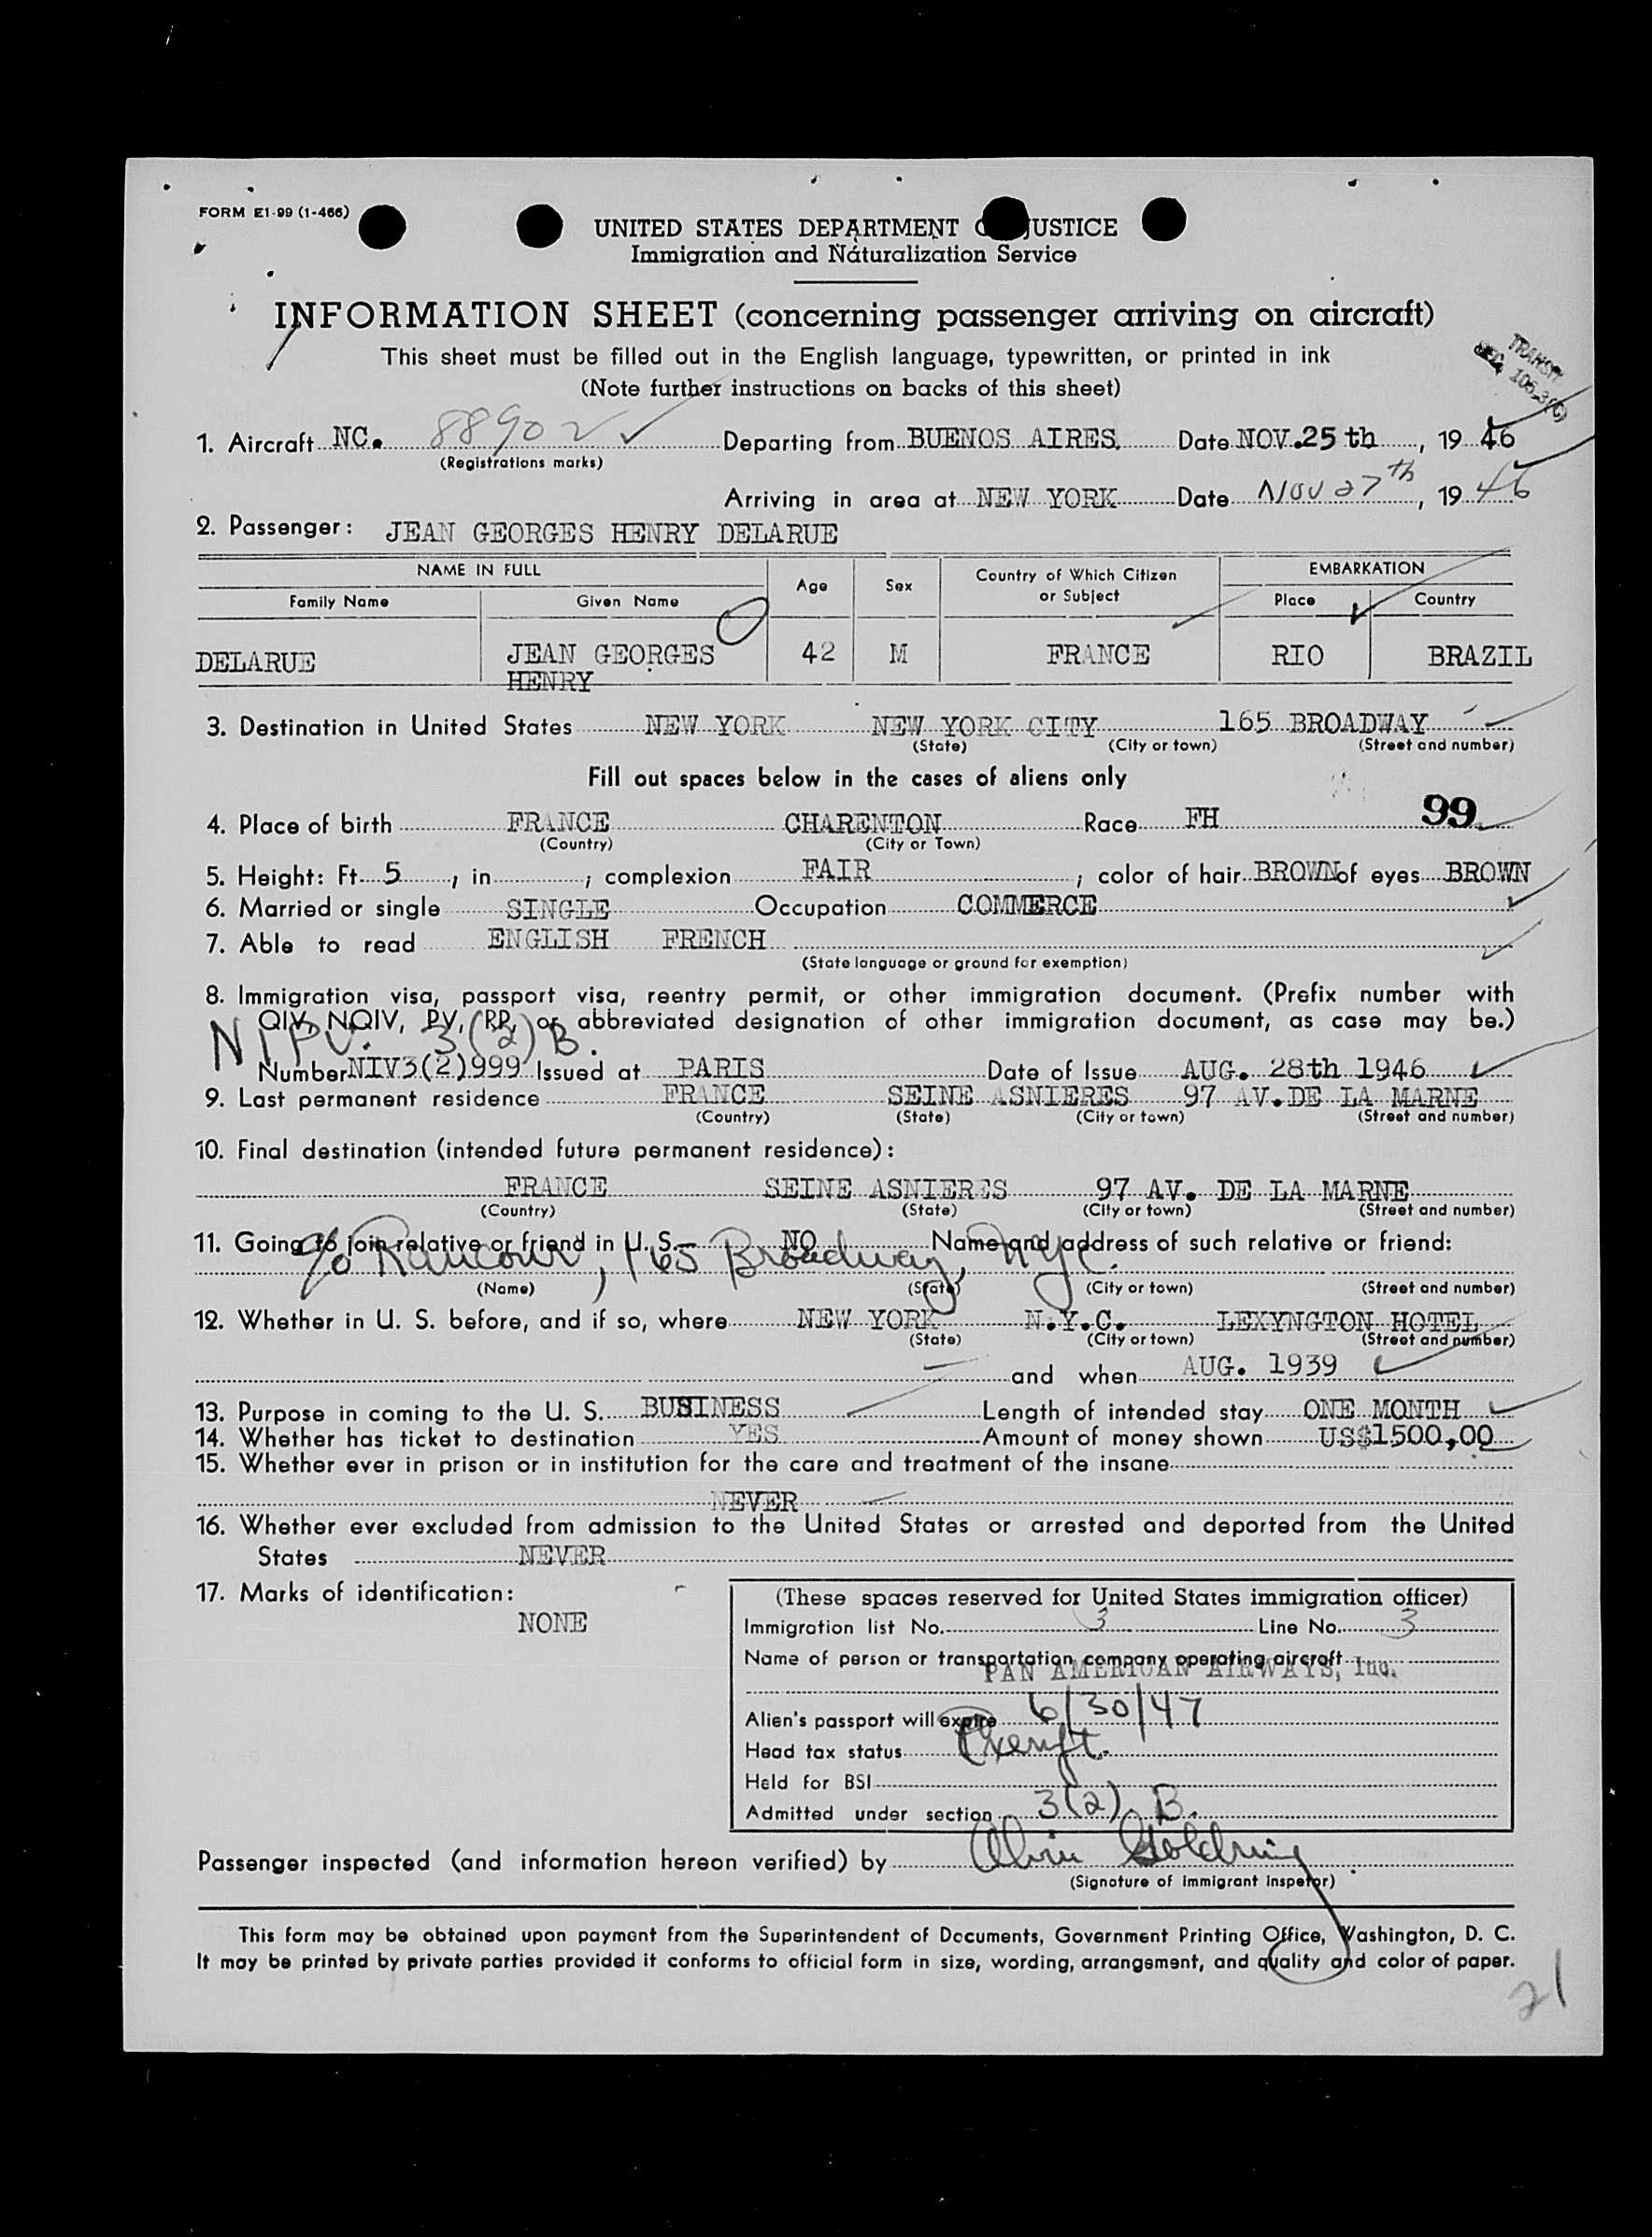 FORM E1-99 (1-466)
UNITED STATES DEPARTMENT JUSTICE
Immigration and Naturalization Service
INFORMATION SHEET (concerning passenger arriving on aircraft)
This sheet must be filled out in the English language, typewritten, or printed in ink
(Note further instructions on backs of this sheet)
TRANSIT
SEC. 105.3(C)
1. Aircraft NC. 88902 Departing from BUENOS AIRES. Date NOV. 25 th, 19 46
(Registrations marks)
Arriving in area at NEW YORK Date Nov 27th, 19 46
2. Passenger: JEAN GEORGES HENRY DELARUE
NAME IN FULL Age Sex Country of Which Citizen or Subject EMBARKATION
Family Name Given Name Place Country
DELARUE JEAN GEORGES HENRY 42 M FRANCE RIO BRAZIL
3. Destination in United States NEW YORK NEW YORK CITY 165 BROADWAY
(State) (City or town) (Street and number)
Fill out spaces below in the cases of aliens only
4. Place of birth FRANCE CHARENTON Race FH 99
(Country) (City or Town)
5. Height: Ft. 5, in ; complexion FAIR ; color of hair BROWN of eyes BROWN
6. Married or single SINGLE Occupation COMMERCE
7. Able to read ENGLISH FRENCH
(State language or ground for exemption)
8. Immigration visa, passport visa, reentry permit, or other immigration document. (Prefix number with
QIV, NQIV, PV, RP, or abbreviated designation of other immigration document, as case may be.)
3(2)B.
Number NIV3(2)999 Issued at PARIS Date of Issue AUG. 28th 1946
9. Last permanent residence FRANCE SEINE ASNIERES 97 AV. DE LA MARNE
(Country) (State) (City or town) (Street and number)
10. Final destination (intended future permanent residence):
FRANCE SEINE ASNIERES 97 AV. DE LA MARNE
(Country) (State) (City or town) (Street and number)
11. Going to join relative or friend in U. S. NO Name and address of such relative or friend:
c/o 165 Broadway, NYC.
(Name) (State) (City or town) (Street and number)
12. Whether in U. S. before, and if so, where NEW YORK N.Y.C. LEXYNGTON HOTEL
(State) (City or town) (Street and number)
and when AUG. 1939
13. Purpose in coming to the U. S. BUSINESS Length of intended stay ONE MONTH
14. Whether has ticket to destination YES Amount of money shown US$1500,00
15. Whether ever in prison or in institution for the care and treatment of the insane
NEVER
16. Whether ever excluded from admission to the United States or arrested and deported from the United
States NEVER
17. Marks of identification:
NONE
(These spaces reserved for United States immigration officer)
Immigration list No. 3 Line No. 3
Name of person or transportation company operating aircraft
PAN AMERICAN AIRWAYS, Inc.
Alien's passport will expire 6/30/47
Head tax status Exempt.
Held for BSI
Admitted under section 3(2) B.
Passenger inspected (and information hereon verified) by Alvin Goldring
(Signature of immigrant inspetor)
This form may be obtained upon payment from the Superintendent of Documents, Government Printing Office, Washington, D. C.
It may be printed by private parties provided it conforms to official form in size, wording, arrangement, and quality and color of paper.
21